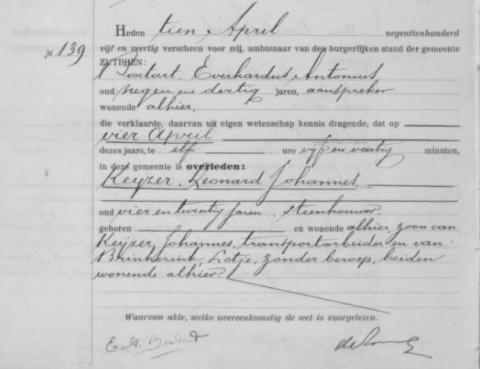 Heden tien April negentienhonderd
№ 139 vijf en veertig verscheen voor mij, ambtenaar van den burgerlijken stand der gemeente
ZUTPHEN:
Bontart, Everhardus Antonius
oud negen en dertig jaren, aanspreker
wonende alhier,
die verklaarde, daarvan uit eigen wetenschap kennis dragende, dat op
vier April
dezes jaars, te elf ure vijf en veertig minuten,
in deze gemeente is overleden:
Keyzer, Leonard Johannes,
oud vier en twintig jaren, steenhouwer,
geboren en wonende alhier, zoon van
Keijzer, Johannes, transportarbeider en van
Brinkerink, Lotje, zonder beroep, beiden
wonende alhier.
Waarvan akte, welke overeenkomstig de wet is voorgelezen.